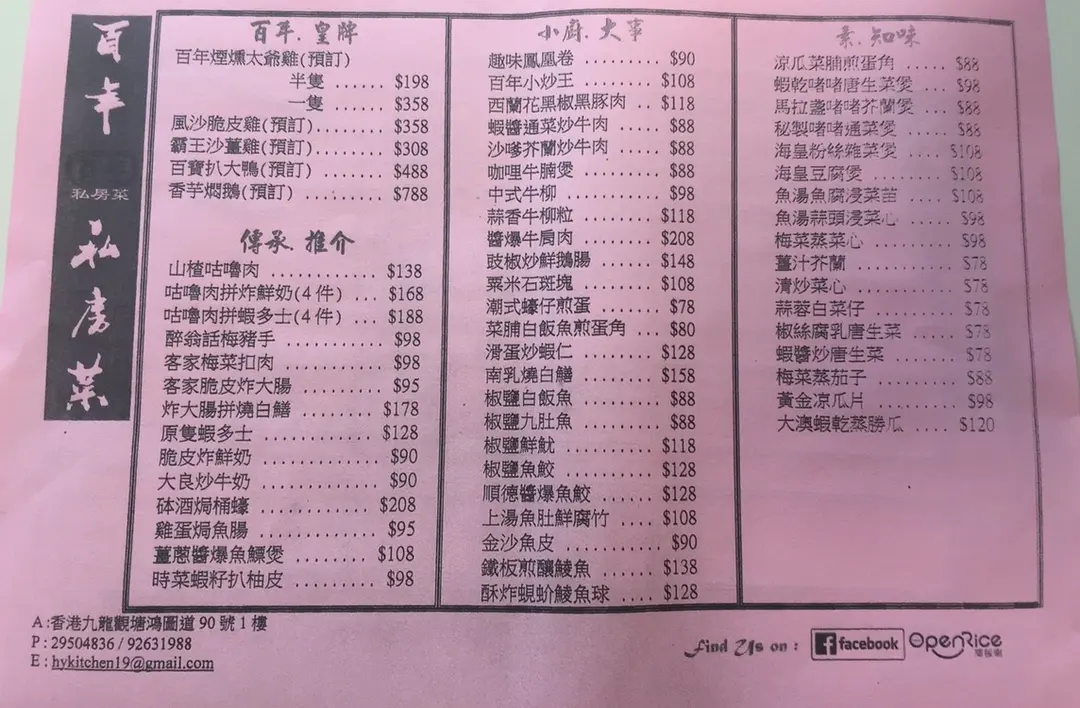 百年
私房菜
私房菜
百年.皇牌
百年煙燻太爺雞(預訂)
半隻 ...... $198
一隻 ...... $358
風沙脆皮雞(預訂)........ $358
霸王沙薑雞(預訂)........ $308
百寶扒大鴨(預訂) ....... $488
香芋燜鵝(預訂) ......... $788
傳承.推介
山楂咕嚕肉 ............ $138
咕嚕肉拼炸鮮奶(4件) ... $168
咕嚕肉拼蝦多士(4件) ... $188
醉翁話梅豬手 .......... $98
客家梅菜扣肉 .......... $98
客家脆皮炸大腸 ........ $95
炸大腸拼燒白鱔 ........ $178
原隻蝦多士 ............ $128
脆皮炸鮮奶 ............ $90
大良炒牛奶 ............ $90
砵酒焗桶蠔 ............ $208
雞蛋焗魚腸 ............ $95
薑蔥醬爆魚鰾煲 ........ $108
時菜蝦籽扒柚皮 ........ $98
小廚.大事
趣味鳳凰卷 .......... $90
百年小炒王 .......... $108
西蘭花黑椒黑豚肉 .. $118
蝦醬通菜炒牛肉 ..... $88
沙嗲芥蘭炒牛肉 ..... $88
咖哩牛腩煲 ......... $88
中式牛柳 ........... $98
蒜香牛柳粒 ......... $118
醬爆牛肩肉 ......... $208
豉椒炒鮮鵝腸 ....... $148
粟米石斑塊 ......... $108
潮式蠔仔煎蛋 ....... $78
菜脯白飯魚煎蛋角 ... $80
滑蛋炒蝦仁 ......... $128
南乳燒白鱔 ......... $158
椒鹽白飯魚 ......... $88
椒鹽九肚魚 ......... $88
椒鹽鮮魷 ........... $118
椒鹽魚鮫 ........... $128
順德醬爆魚鮫 ....... $128
上湯魚肚鮮腐竹 .... $108
金沙魚皮 ........... $90
鐵板煎釀鯪魚 ...... $138
酥炸蜆蚧鯪魚球 .... $128
素.知味
涼瓜菜脯煎蛋角 ..... $88
蝦乾啫啫唐生菜煲 ... $98
馬拉盞啫啫芥蘭煲 ... $88
秘製啫啫通菜煲 ..... $88
海皇粉絲雜菜煲 .... $108
海皇豆腐煲 ......... $108
魚湯魚腐浸菜苗 .... $108
魚湯蒜頭浸菜心 ..... $98
梅菜蒸菜心 ......... $98
薑汁芥蘭 ........... $78
清炒菜心 ........... $78
蒜蓉白菜仔 ......... $78
椒絲腐乳唐生菜 ..... $78
蝦醬炒唐生菜 ....... $78
梅菜蒸茄子 ......... $88
黃金涼瓜片 ......... $98
大澳蝦乾蒸勝瓜 .... $120
A:香港九龍觀塘鴻圖道 90 號 1 樓
P: 29504836 / 92631988
E: hykitchen19@gmail.com
Find Us on : facebook OpenRice
開飯喇